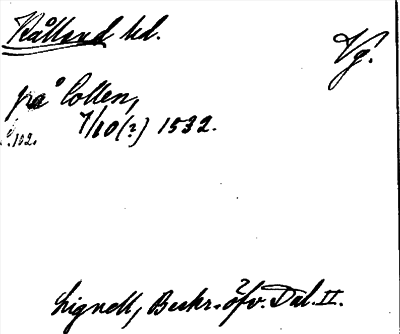 Kålland hd. Vg.
på Collen,
7/10(?) 1532.
s. 102.
Lignell, Beskr. öfv. Dal. II.